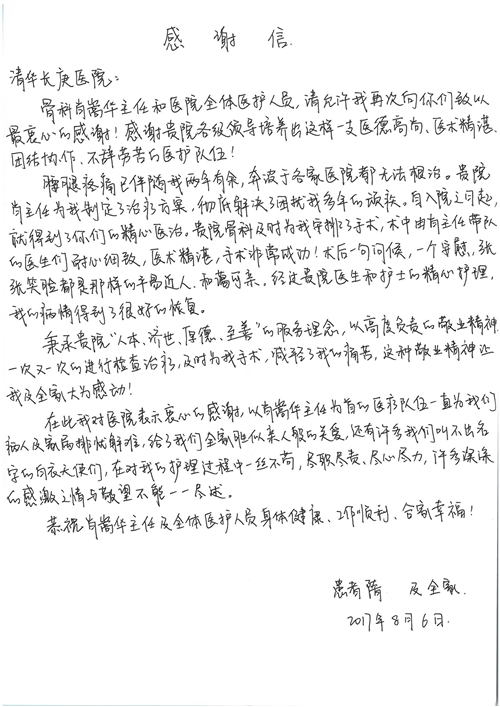 感 谢 信.
清华长庚医院：
骨科肖嵩华主任和医院全体医护人员，请允许我再次向你们致以
最衷心的感谢！感谢贵院各级领导培养出这样一支医德高尚、医术精湛、
团结协作、不辞劳苦的医护队伍！
腰腿疼痛已伴随我两年有余，奔波于各家医院都无法根治。贵院
肖主任为我制定了治疗方案，彻底解决了困扰我多年的顽疾。自入院之日起，
就得到了你们的精心医治。贵院骨科及时为我安排了手术，术中由肖主任带队
的医生们耐心细致，医术精湛，手术非常成功！术后一句问候，一个安慰，张
张笑脸都是那样的平易近人、和蔼可亲。经过贵院医生和护士的精心护理，
我的病情得到了很好的恢复。
秉承贵院“人本、济世、厚德、至善”的服务理念，以高度负责的敬业精神
一次又一次的进行检查治疗，及时为我手术，减轻了我的痛苦，这种敬业精神让
我及全家大为感动！
在此我对医院表示衷心的感谢，以肖嵩华主任为首的医疗队伍一直为我们
病人及家属排忧解难，给了我们全家胜似亲人般的关爱，还有许多我们叫不出名
字的白衣天使们，在对我的护理过程中一丝不苟，尽职尽责、尽心尽力，许多深深
的感激之情与敬望不能一一尽述。
恭祝肖嵩华主任及全体医护人员身体健康、工作顺利、合家幸福！
患者隋 及全家.
2017年8月6日.